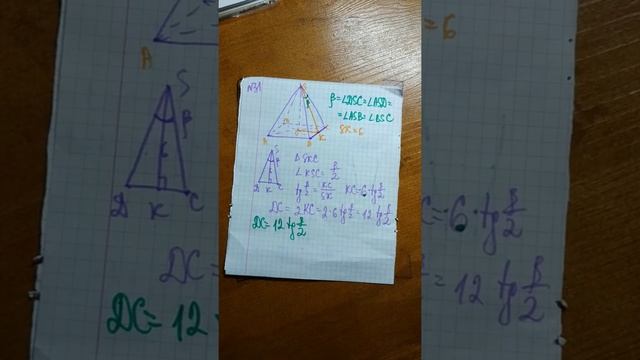 №31
S
β = ∠DSC = ∠ASD =
= ∠ASB = ∠BSC
SK = 6
A
D
K
S
△SKC
∠KSC = β/2
D K C
tg β/2 = KC/SK KC = 6·tg β/2
DC = 2KC = 2·6 tg β/2 = 12 tg β/2
DC = 12·tg β/2